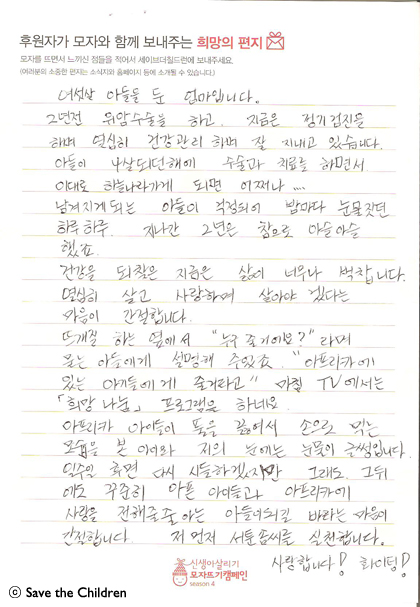 후원자가 모자와 함께 보내주는 희망의 편지
모자를 뜨면서 느끼신 점들을 적어서 세이브더칠드런에 보내주세요.
(여러분의 소중한 편지는 소식지와 홈페이지 등에 소개될 수 있습니다.)
여섯살 아들을 둔 엄마입니다.
2년전 위암수술을 하고. 지금은 정기검진을
하며 열심히 건강관리 하며 잘 지내고 있습니다.
아들이 4살되던해에 수술과 치료를 하면서
이대로 하늘나라가게 되면 어쩌나 ....
남겨지게되는 아들이 걱정되어 밤마다 눈물짓던
하루 하루. 지나간 2년은 참으로 아슬아슬
했죠.
건강을 되찾은 지금은 삶이 너무나 벅찹니다.
열심히 살고 사랑하며 살아야 겠다는
마음이 간절합니다.
뜨개질 하는 옆에서 "누구 줄거예요?" 라며
묻는 아들에게 설명해 주었죠. "아프리카에
있는 아기들에게 줄거라고" 마침 TV에서는
「희망 나눔」 프로그램을 하네요.
아프리카 아이들이 풀을 끓여서 손으로 먹는
모습을 본 아이와 저의 눈에는 눈물이 글썽입니다.
일주일 흐면 다시 시들하겠지만 그래도. 그뒤
에도 꾸준히 아픈 아이들과 아프리카에
사랑을 전해줄줄 아는 아들이되길 바라는 마음이
간절합니다. 저 먼저 서툰솜씨를 실천합니다.
사랑합니다! 화이팅!
신생아살리기
모자뜨기캠페인
season 4
ⓒ Save the Children